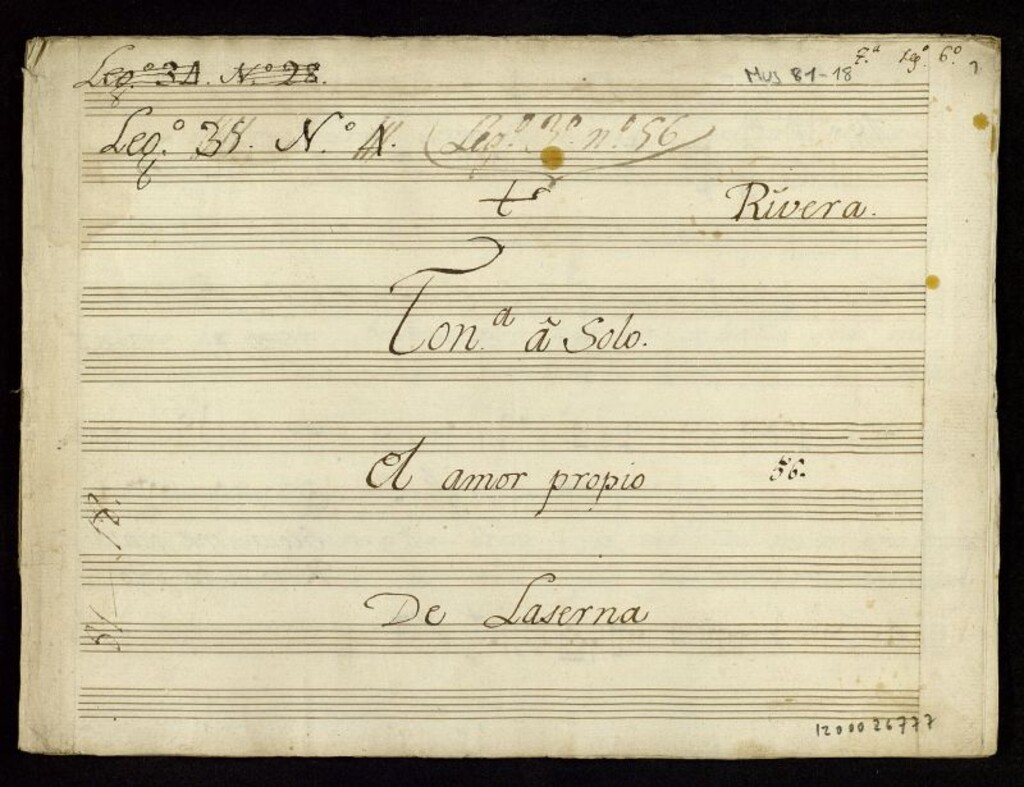 Leg.º 34. N.º 28.
Mus 81-18
7.ª Leg.º 6.º
Leg.º 35. N.º 4. (Leg.º 3.º n.º 56
Rivera.
Ton.ª â Solo.
El amor propio 56.
De Laserna
1200026777